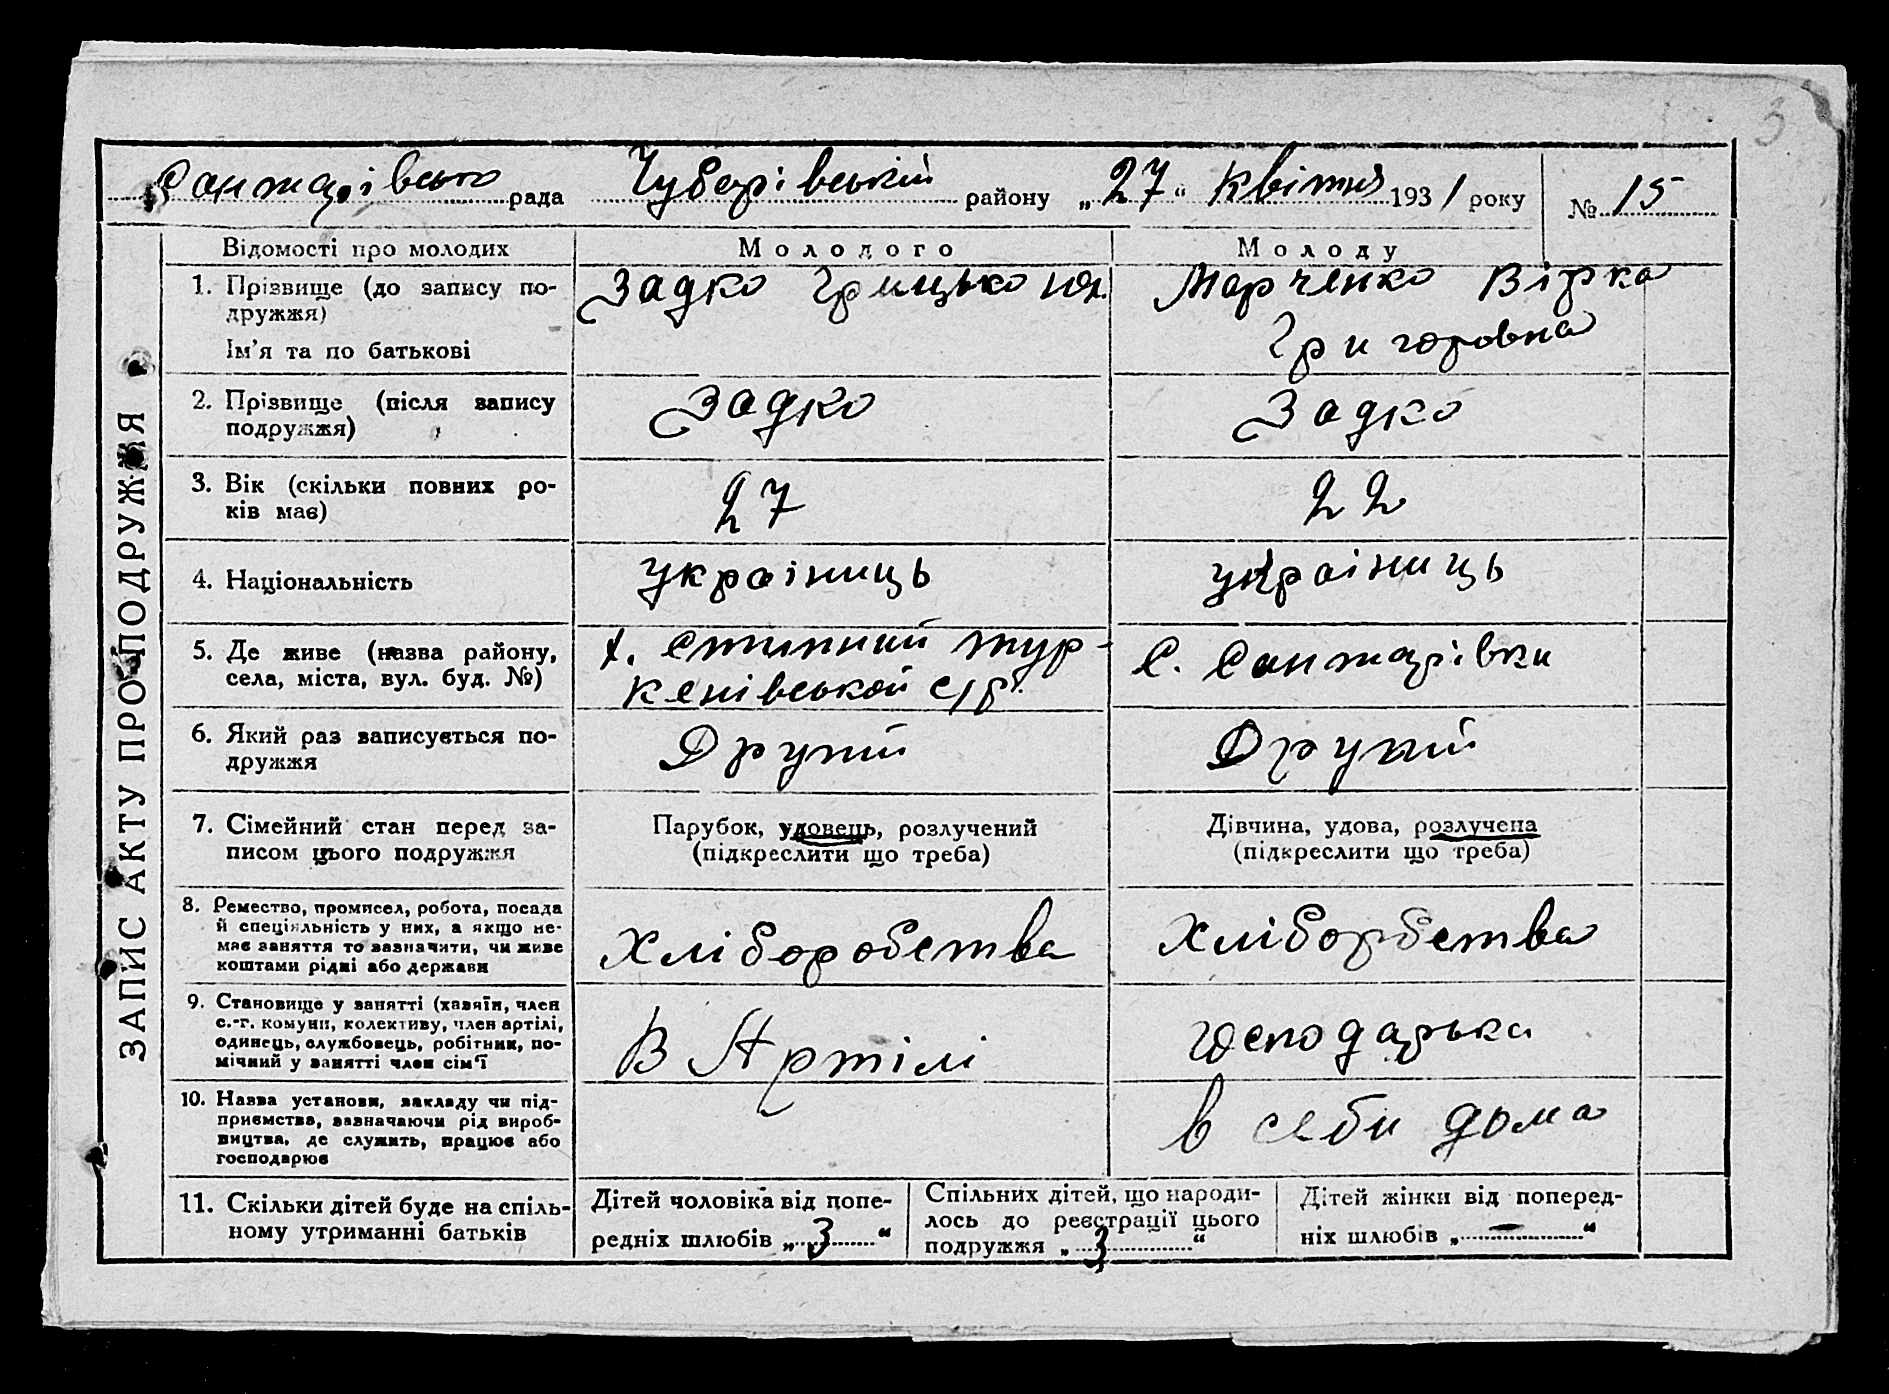 3
Сантарівсько рада Чубарівський району „27“ Квітня 1931 року № 15
ЗАПИС АКТУ ПРО ПОДРУЖЖЯ
Відомості про молодих Молодого Молоду
1. Прізвище (до запису по-
дружжя)
Ім’я та по батькові
Задко Грицько
Марченко Вірка
Григоровна
2. Прізвище (після запису
подружжя)
Задко
Задко
3. Вік (скільки повних ро-
ків має)
27
22
4. Національність
україниць
україниць
5. Де живе (назва району,
села, міста, вул. буд. №)
х. Стипний тур-
кенівськой с/р.
С. Сантарівки
6. Який раз записується по-
дружжя
Другий
Другий
7. Сімейний стан перед за-
писом цього подружжя
Парубок, удовець, розлучений
(підкреслити що треба)
Дівчина, удова, розлучена
(підкреслити що треба)
8. Ремество, промисел, робота, посада
й спеціяльність у них, а якщо не-
має заняття то зазначити, чи живе
коштами рідні або держави
Хліборобства
Хліборбства
9. Становище у занятті (хазяїн, член
с.-г. комуни, колективу, член артілі,
одинець, службовець, робітник, по-
мічний у занятті член сім’ї
В Артілі
господарька
10. Назва установи, закладу чи під-
приємства, зазначаючи рід вироб-
ництва, де служить, працює або
господарює
в себи дома
11. Скільки дітей буде на спіль-
ному утриманні батьків
Дітей чоловіка від попе-
редніх шлюбів „3“
Спільних дітей, що народи-
лось до реєстрації цього
подружжя „3“
Дітей жінки від поперед-
ніх шлюбів „—“